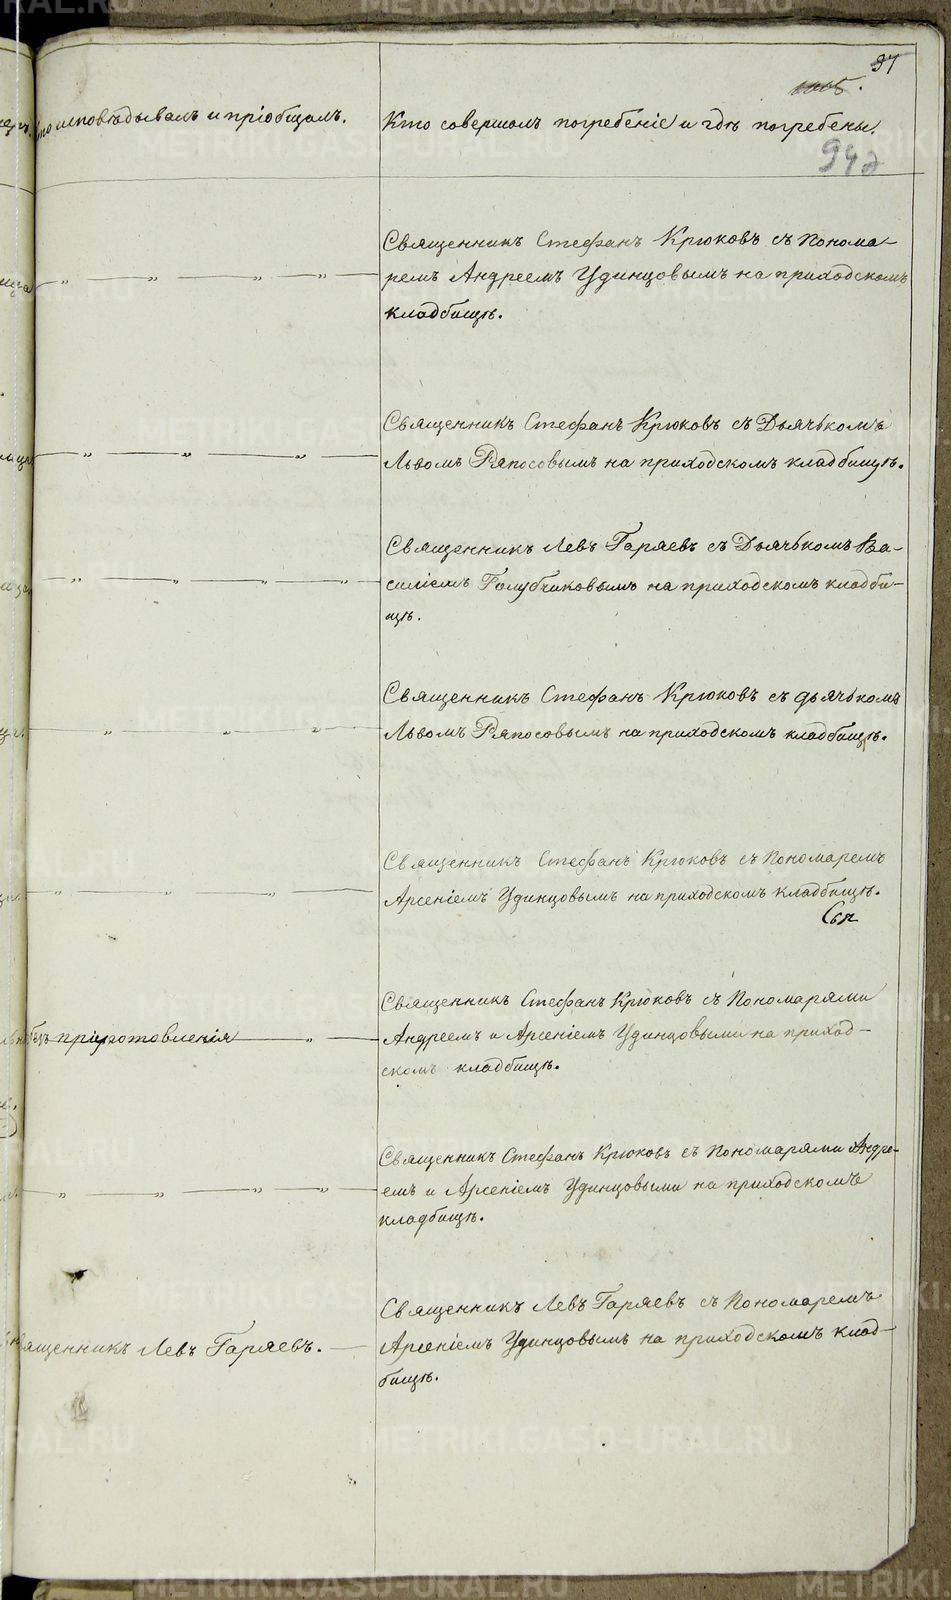 37
942
Кто исповѣдывалъ и пріобщалъ.
Кто совершалъ погребеніе и гдѣ погребены.
Священникъ Стефанъ Крюковъ съ Понома-
ремъ Андреемъ Удинцовымъ на приходскомъ
кладбищѣ.
Священникъ Стефанъ Крюковъ съ Дьячькомъ
Львомъ Ряпосовымъ на приходскомъ кладбищѣ.
Священникъ Левъ Гаряевъ съ Дьячькомъ Ва-
силіемъ Голубчиковымъ на приходскомъ кладби-
щѣ.
Священникъ Стефанъ Крюковъ съ дьячькомъ
Львомъ Ряпосовымъ на приходскомъ кладбищѣ.
Священникъ Стефанъ Крюковъ съ Пономаремъ
Арсеніемъ Удинцовымъ на приходскомъ кладбищѣ.
безъ приготовленія
Священникъ Стефанъ Крюковъ съ Пономарями
Андреемъ и Арсеніемъ Удинцовыми на приход-
скомъ кладбищѣ.
Священникъ Стефанъ Крюковъ съ Пономарями Андре-
емъ и Арсеніемъ Удинцовыми на приходскомъ
кладбищѣ.
Священникъ Левъ Гаряевъ.
Священникъ Левъ Гаряевъ съ Пономаремъ
Арсеніемъ Удинцовымъ на приходскомъ клад-
бищѣ.
METRIKI.GASO-URAL.RU